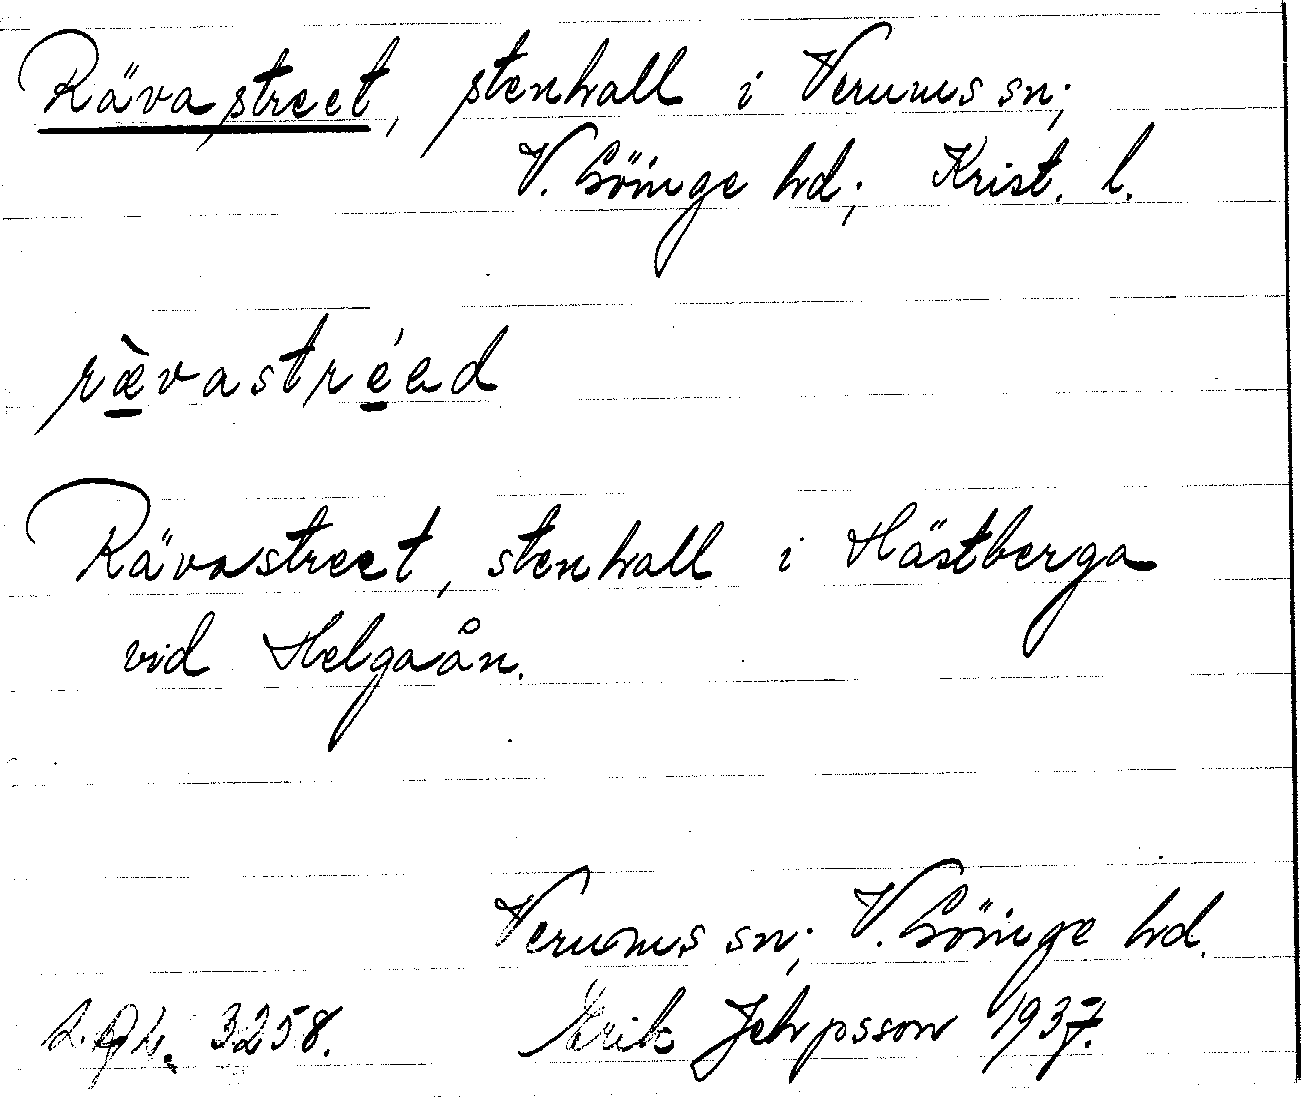 Rävastreet, stenhall i Verums sn;
V. Göinge hd; Krist. l.
rævastréed
Rävastreet, stenhall i Hästberga
vid Helgaån.
Verums sn; V. Göinge hd.
3258. Erik Jehpsson 1937.